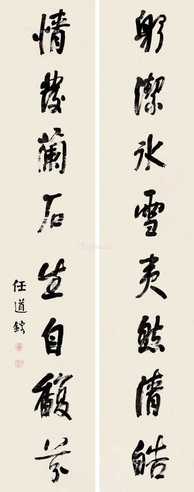 躬潔冰雪夷然清皓
情發蘭石生自馥芬
任道鎔